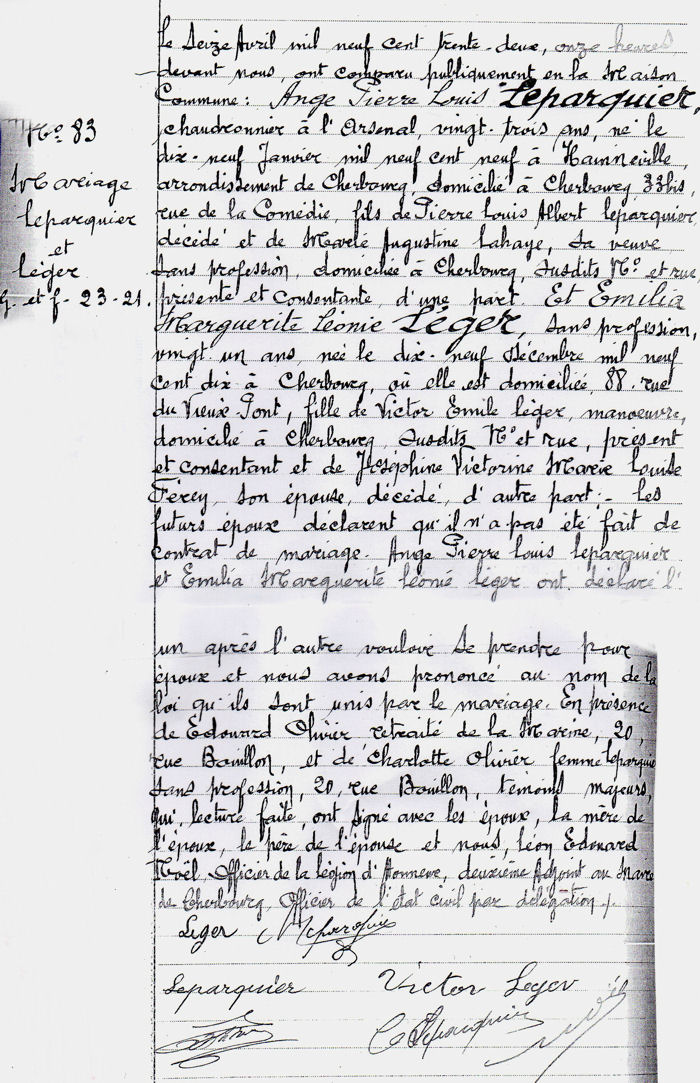 Le Seize Avril mil neuf cent trente-deux, onze heures
devant nous, ont comparu publiquement en la Maison
Commune: Ange Pierre Louis Leparquier,
chaudronnier à l'Arsenal, vingt-trois ans, né le
dix-neuf Janvier mil neuf cent neuf à Hainneville,
arrondissement de Cherbourg, domicilié à Cherbourg, 33bis,
rue de la Comédie, fils de Pierre Louis Albert Leparquier,
décédé et de Marie Augustine Lahaye, sa veuve
sans profession, domiciliée à Cherbourg, susdits No et rue,
présente et consentante, d'une part. Et Emilia
Marguerite Léonie Léger, sans profession,
vingt-un ans, née le dix-neuf Décembre mil neuf
cent dix à Cherbourg, où elle est domiciliée, 88, rue
du Vieux Pont, fille de Victor Emile Léger, manoeuvre,
domicilié à Cherbourg, susdits No et rue, présent
et consentant et de Joséphine Victorine Marie Louise
Férey, son épouse, décédé, d'autre part;- Les
futurs époux déclarent qu'il n'a pas été fait de
contrat de mariage. Ange Pierre Louis Leparquier
et Emilia Marguerite Léonie Léger ont déclaré l'
No 83
Mariage
Leparquier
et
Léger
G. et f. 23-21.
un après l'autre vouloir se prendre pour
époux et nous avons prononcé au nom de la
loi qu'ils sont unis par le mariage. En présence
de Edouard Olivier retraité de la Marine, 20,
rue Bouillon, et de Charlotte Olivier femme Leparquier
sans profession, 20, rue Bouillon, témoins majeurs,
qui, lecture faite, ont signé avec les époux, la mère de
l'époux, le père de l'épouse et nous, Léon Edouard
Noël, Officier de la légion d'Honneur, deuxième Adjoint au Maire
de Cherbourg, Officier de l'état civil par délégation./.
Leger
Leparquier
Victor Leger
C Leparquier